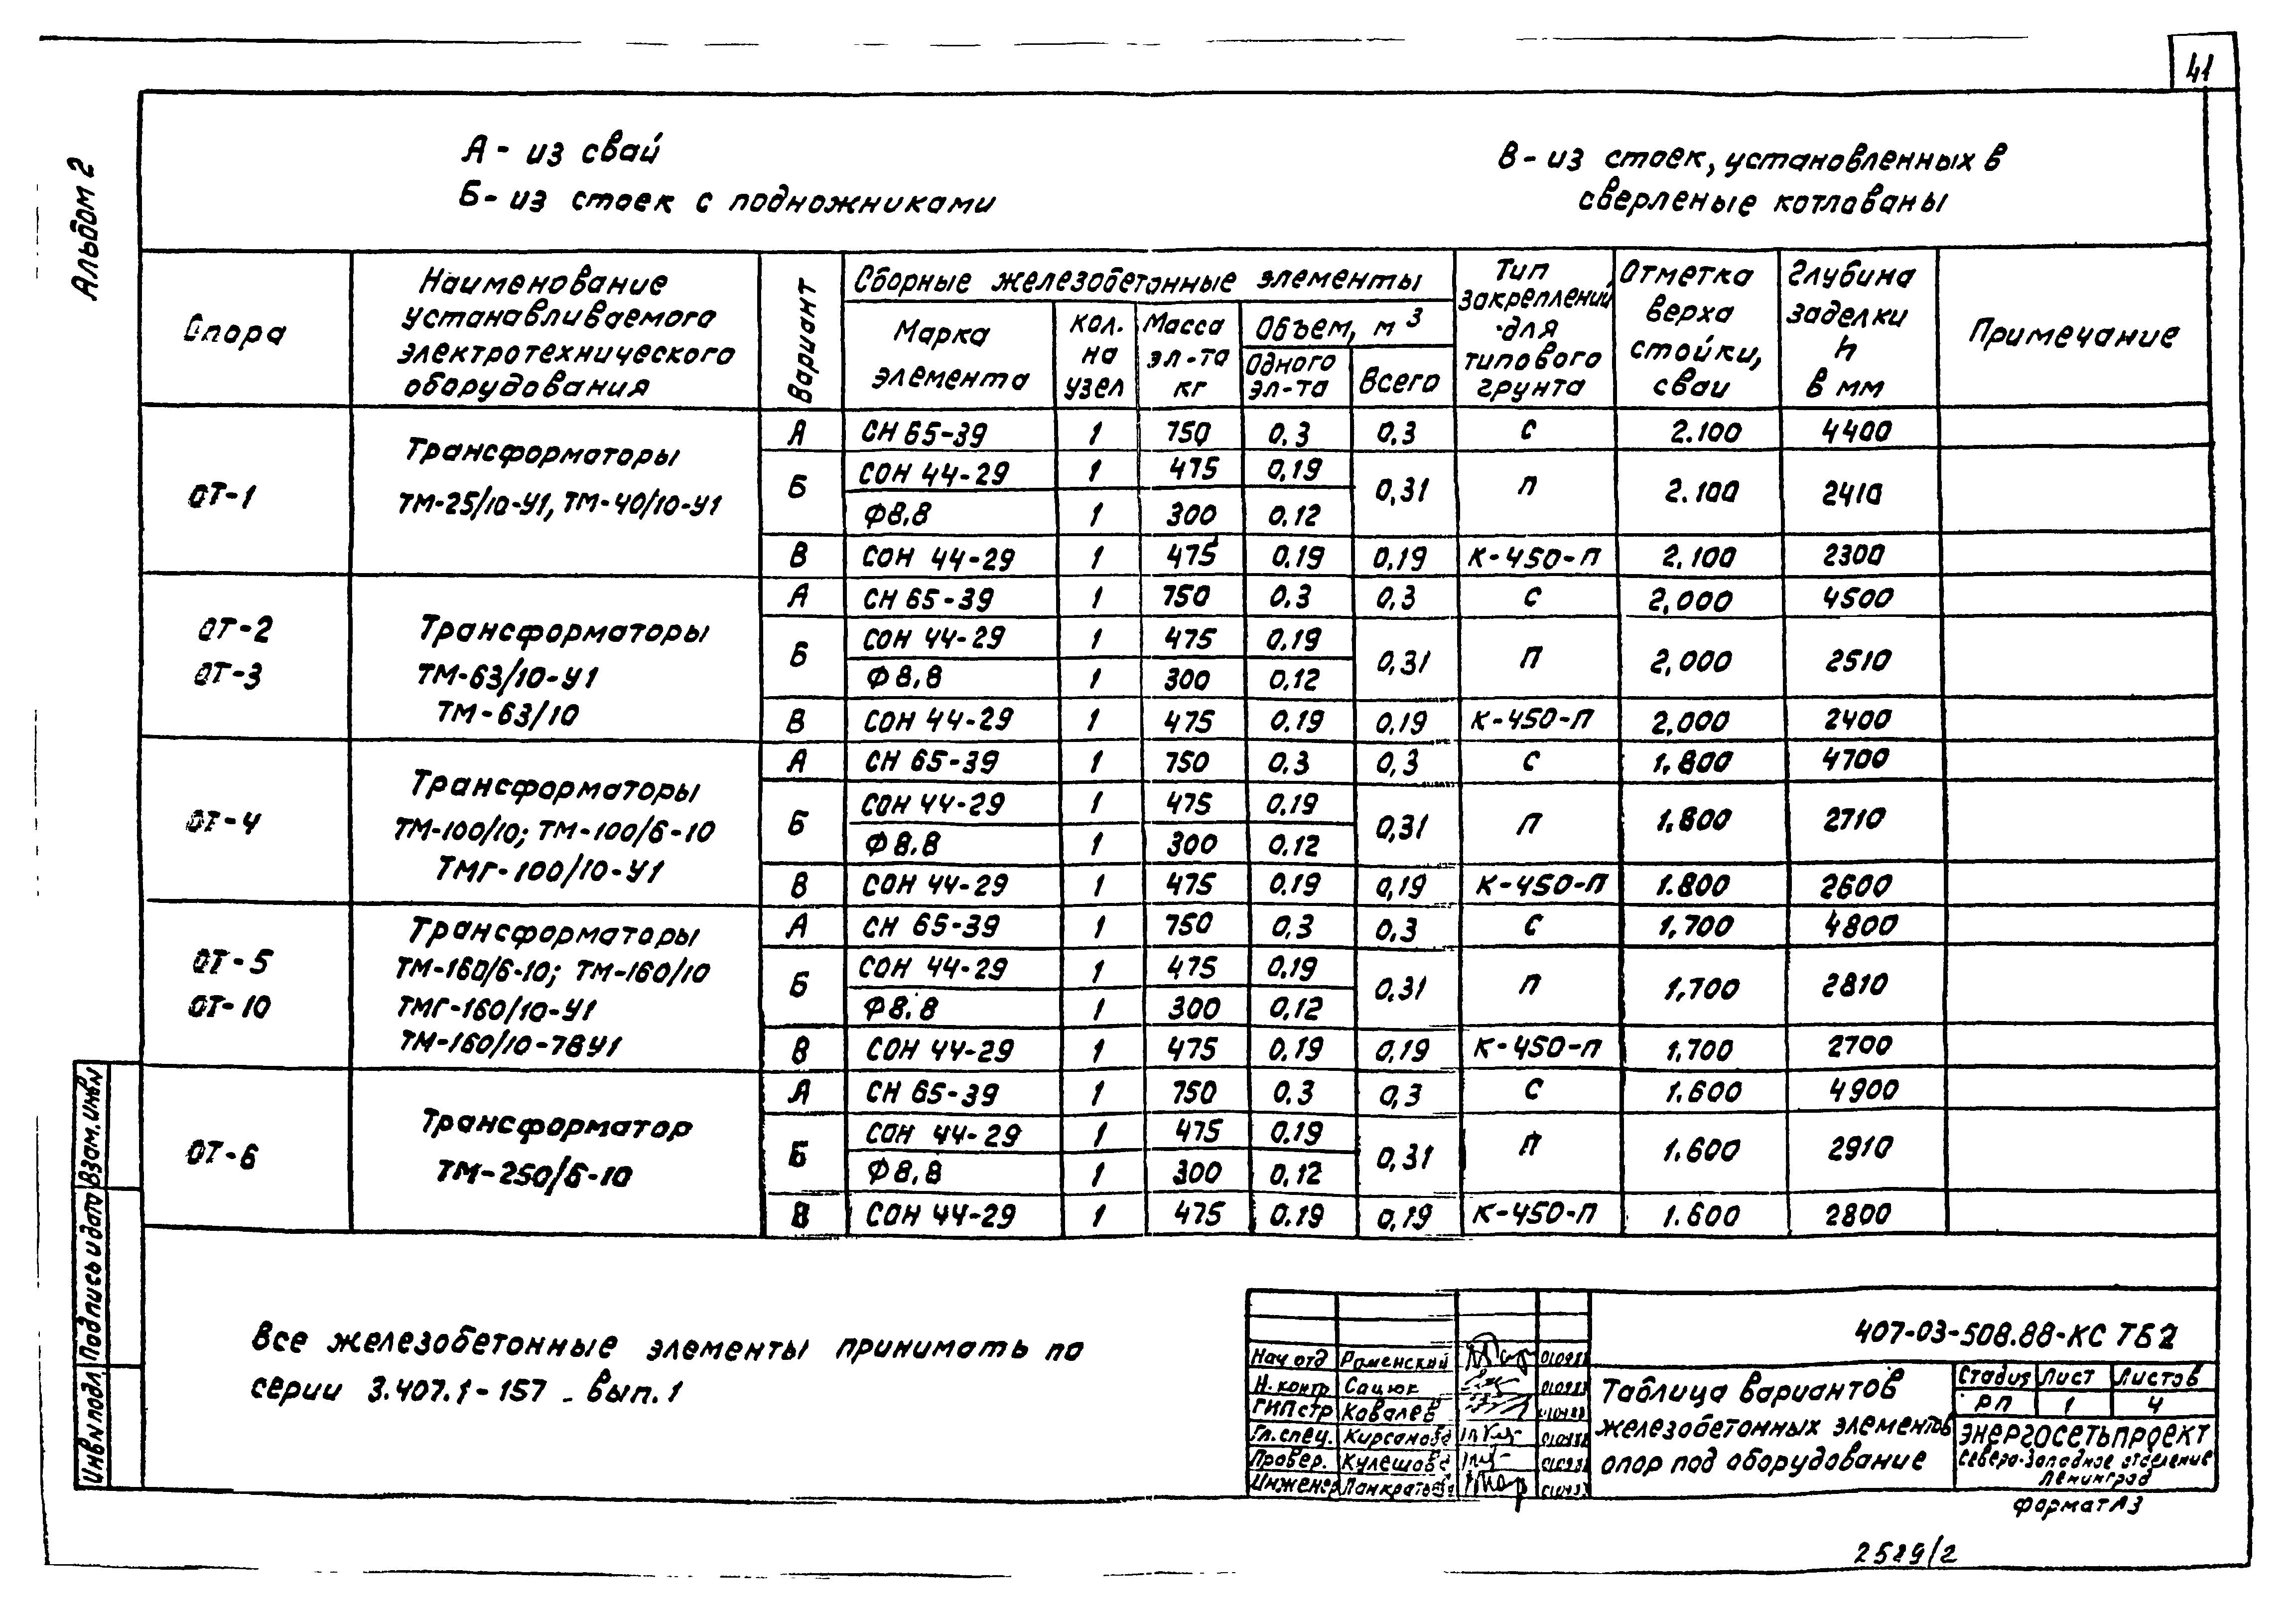 41
Альбом 2
А - из свай
Б - из стоек с подножниками
В - из стоек, установленных в
сверленые котлованы
Опора
Наименование
устанавливаемого
электротехнического
оборудования
Вариант
Сборные железобетонные элементы
Марка
элемента
Кол.
на
узел
Масса
эл-та
кг
Объем, м3
Одного
эл-та
Всего
Тип
закреплений
для
типового
грунта
Отметка
верха
стойки,
сваи
Глубина
заделки
h
в мм
Примечание
ОТ-1
Трансформаторы
ТМ-25/10-У1, ТМ-40/10-У1
А СН 65-39 1 750 0.3 0.3 С 2.100 4400
Б СОН 44-29 1 475 0,19 0,31 П 2.100 2410
Ф8.8 1 300 0.12
В СОН 44-29 1 475 0.19 0,19 К-450-П 2.100 2300
ОТ-2
ОТ-3
Трансформаторы
ТМ-63/10-У1
ТМ-63/10
А СН 65-39 1 750 0.3 0,3 С 2,000 4500
Б СОН 44-29 1 475 0.19 0,31 П 2,000 2510
Ф8.8 1 300 0.12
В СОН 44-29 1 475 0.19 0,19 К-450-П 2,000 2400
ОТ-4
Трансформаторы
ТМ-100/10; ТМ-100/6-10
ТМГ-100/10-У1
А СН 65-39 1 750 0.3 0,3 С 1.800 4700
Б СОН 44-29 1 475 0.19 0,31 П 1.800 2710
Ф8.8 1 300 0.12
В СОН 44-29 1 475 0.19 0,19 К-450-П 1.800 2600
ОТ-5
ОТ-10
Трансформаторы
ТМ-160/6-10; ТМ-160/10
ТМГ-160/10-У1
ТМ-160/10-78У1
А СН 65-39 1 750 0,3 0.3 С 1,700 4800
Б СОН 44-29 1 475 0,19 0,31 П 1,700 2810
Ф8.8 1 300 0,12
В СОН 44-29 1 475 0,19 0,19 К-450-П 1.700 2700
ОТ-6
Трансформатор
ТМ-250/6-10
А СН 65-39 1 750 0.3 0,3 С 1.600 4900
Б СОН 44-29 1 475 0.19 0,31 П 1.600 2910
Ф8,8 1 300 0,12
В СОН 44-29 1 475 0.19 0,19 К-450-П 1.600 2800
Все железобетонные элементы принимать по
серии 3.407.1-157 вып.1
Инв№подл Подпись и дата Взам.инв№
Нач отд Раменский
Н.контр Сацюк
ГИПстр Ковалев
Гл.спец. Кирсанова
Провер. Кулешова
Инженер Панкратьева
407-03-508.88-КС ТБ2
Таблица вариантов
железобетонных элементов
опор под оборудование
Стадия Лист Листов
РП 1 4
ЭНЕРГОСЕТЬПРОЕКТ
Северо-Западное отделение
Ленинград
формат А3
2529/2